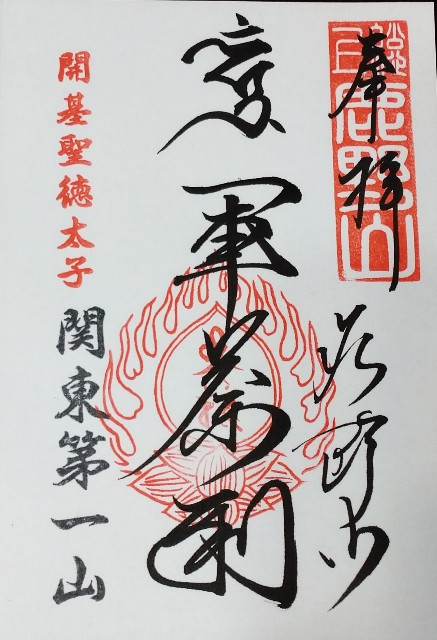 奉拝
鹿野山
鹿野山
軍荼利
開基聖徳太子
関東第一山